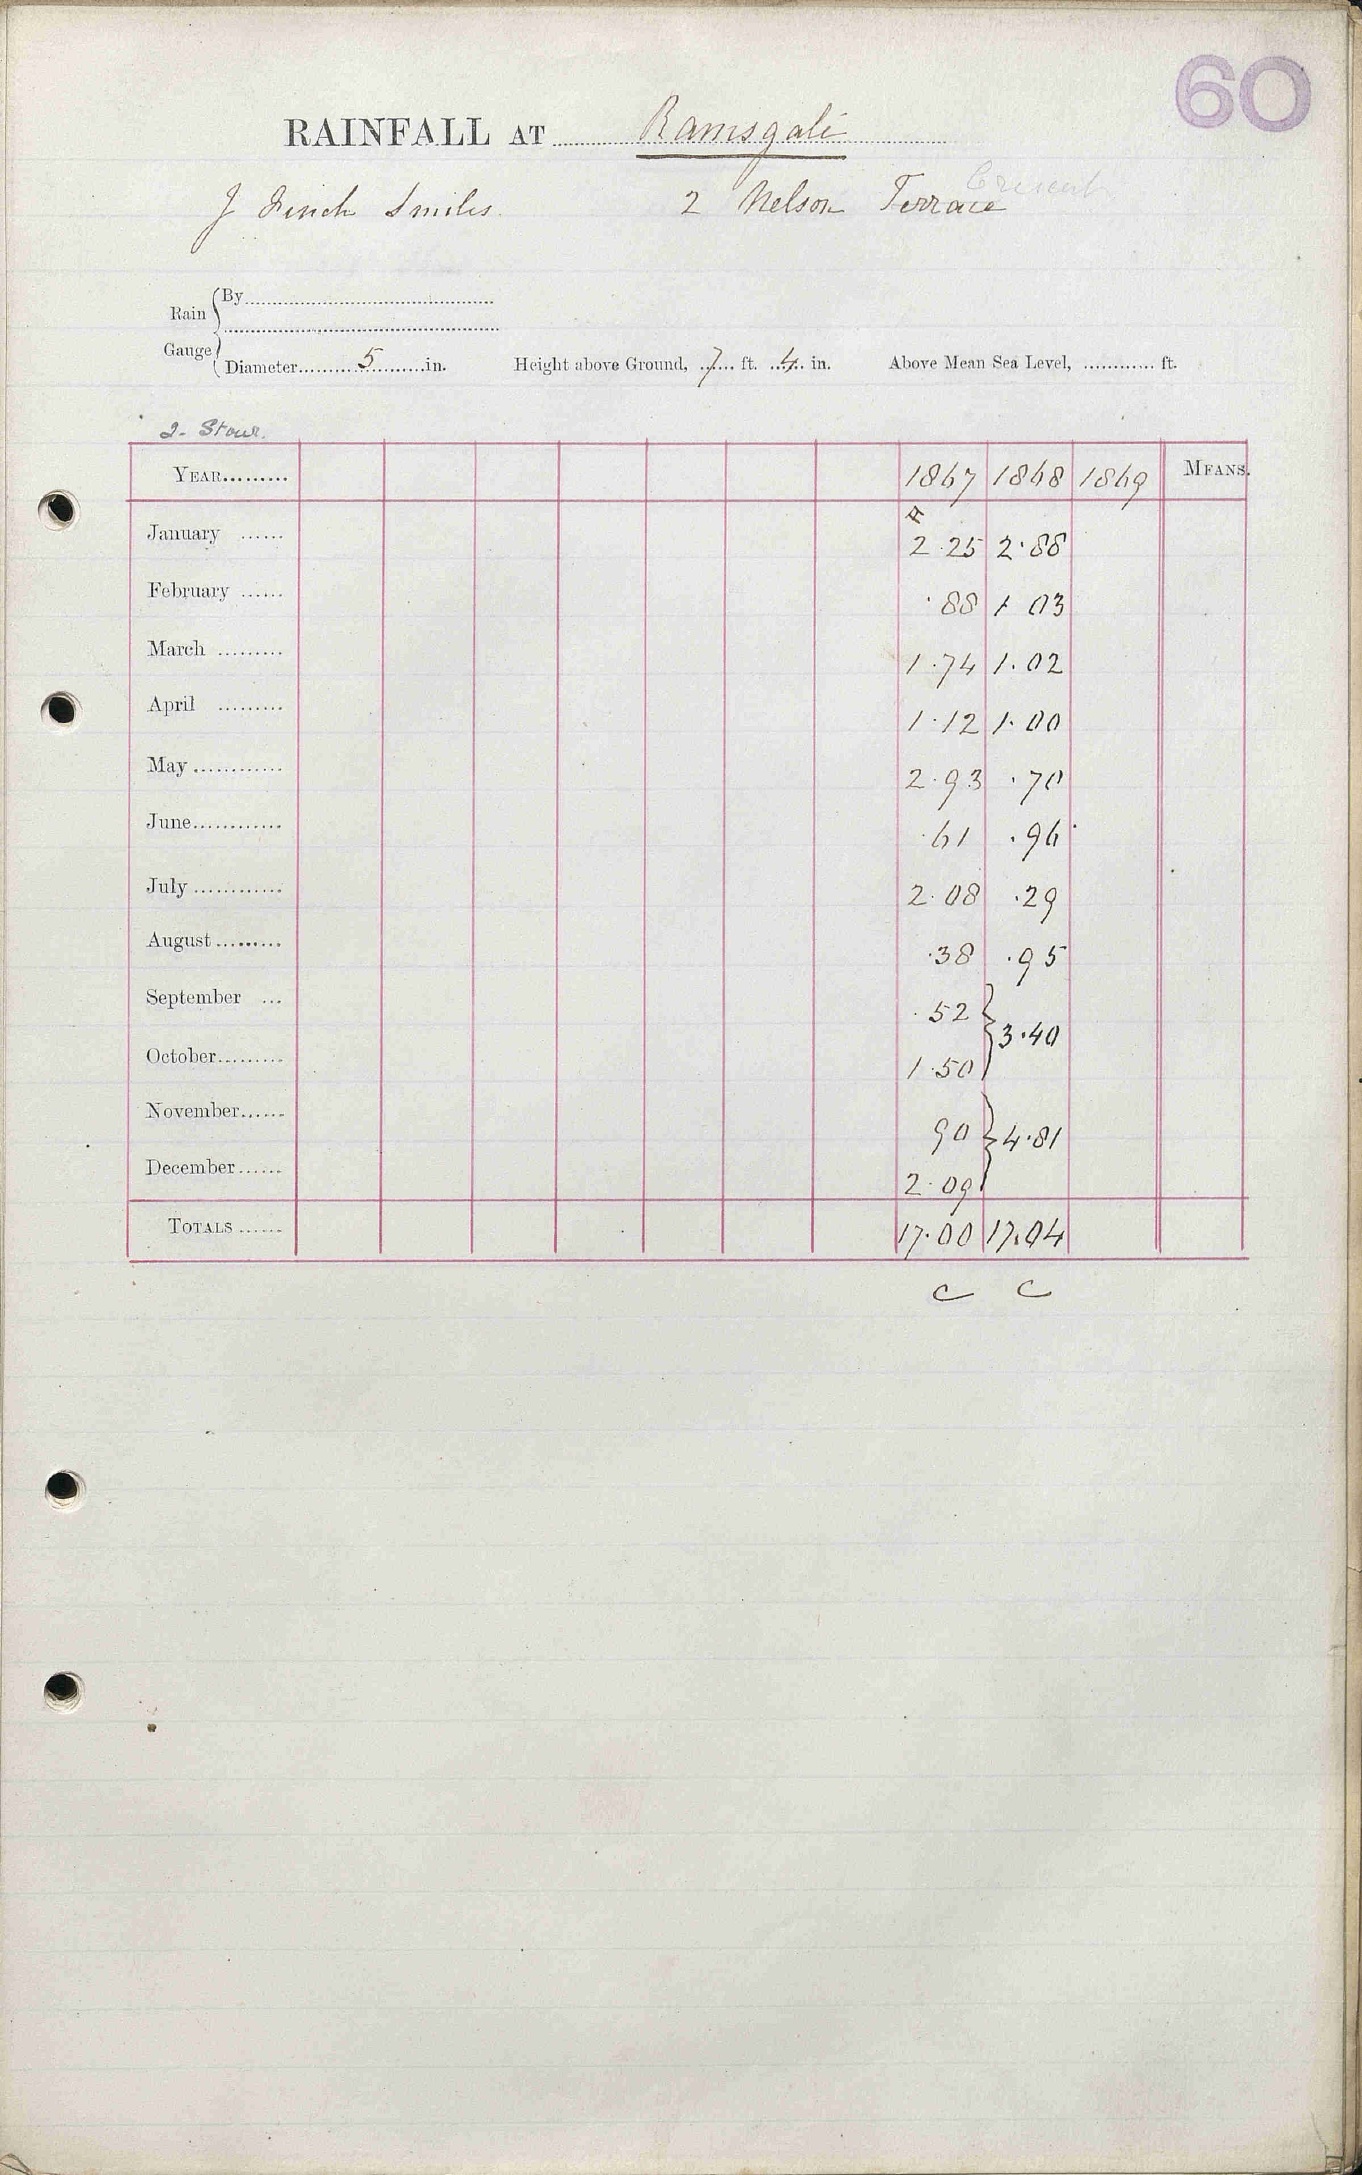 60
RAINFALL AT Ramsgate
Crescent
J Finch Smiles. 2 Nelson Terrace
Rain Gauge
By
Diameter 5 in. Height above Ground, 7 ft. 4 in. Above Mean Sea Level, ft.
2. Stour.
YEAR 1867 1868 1869 MEANS.
A
January 2.25 2.88
February .88 1 03
March 1.74 1.02
April 1.12 1.00
May 2.93 .70
June .61 .96
July 2.08 .29
August .38 .95
September .52
3.40
October 1.50
November 90
4.81
December 2.09
TOTALS 17.00 17.04
C C